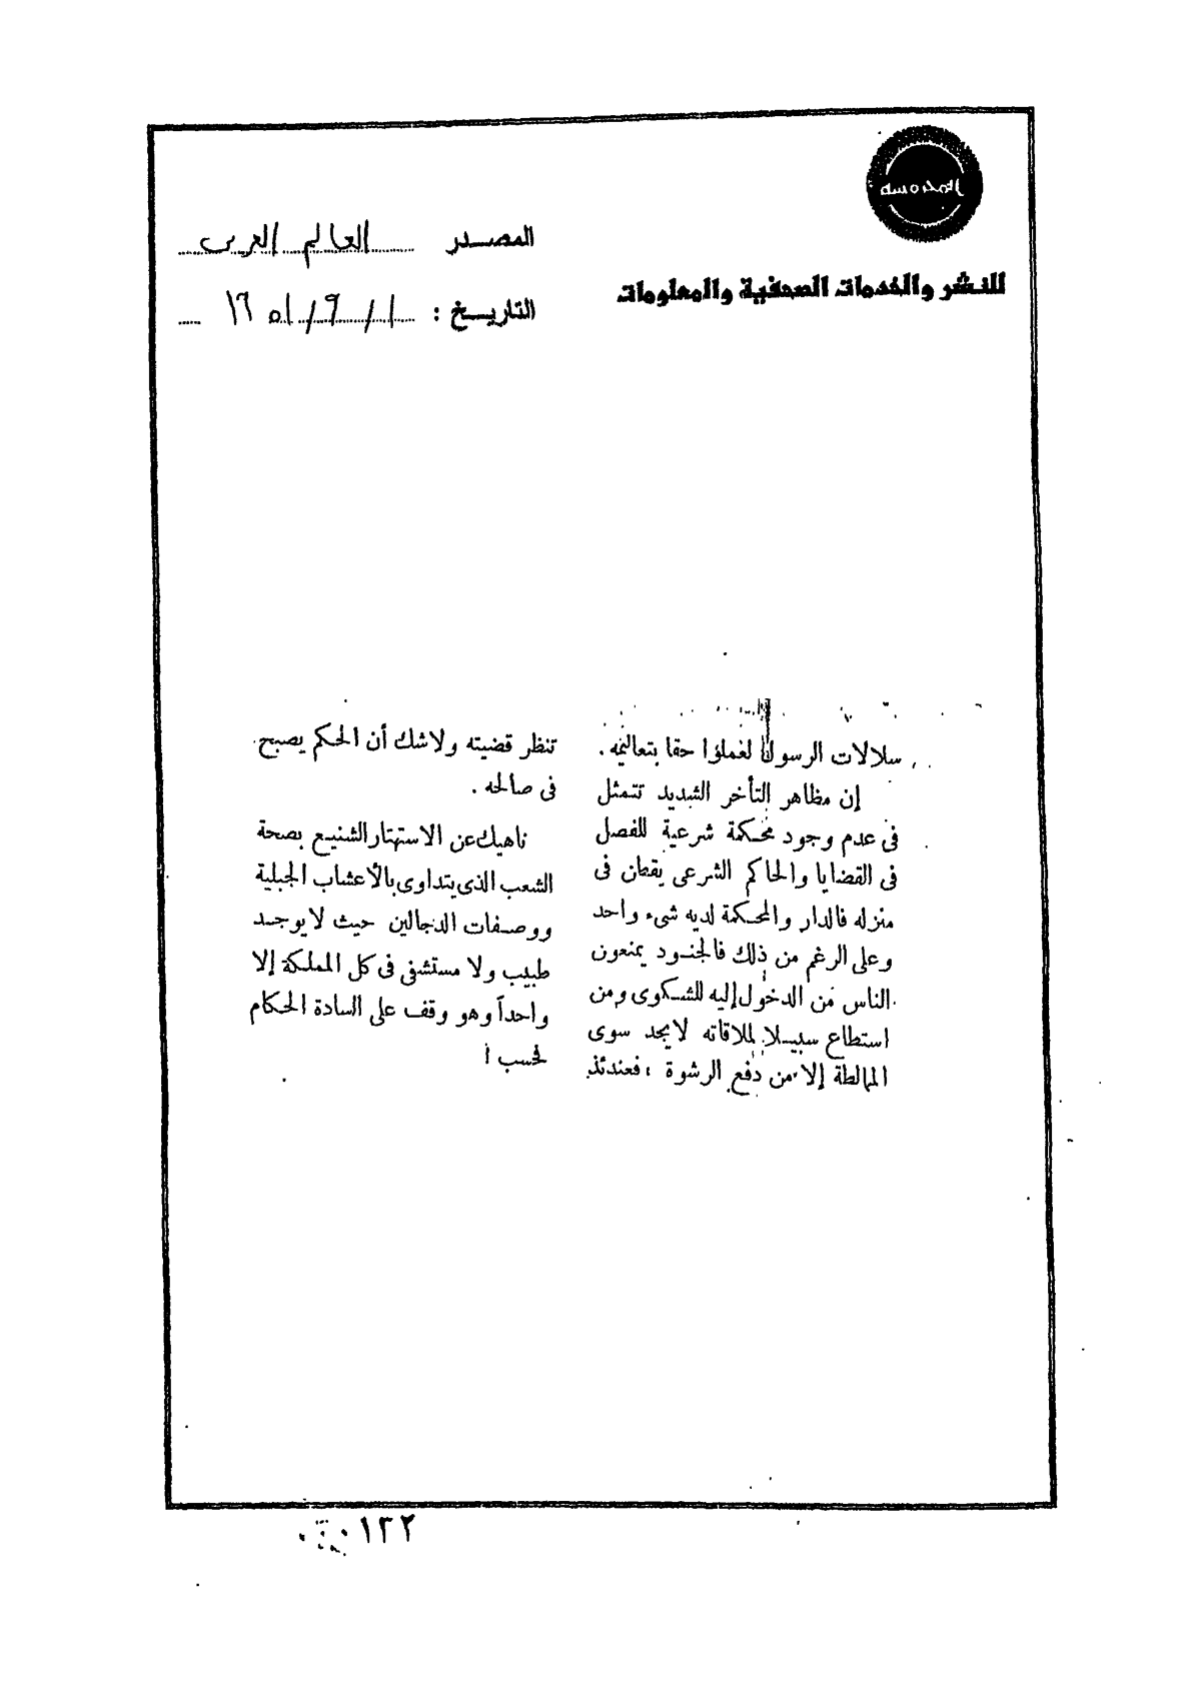 المحروسة
للنشر والخدمات الصحفية والمعلومات
المصدر العالم العربى
التاريخ : ١ / ٩ / ١٩٥١
سلالات الرسول لعملوا حقا بتعاليمه .
إن مظاهر التأخر الشديد تتمثل
فى عدم وجود محكمة شرعية للفصل
فى القضايا والحاكم الشرعى يقطن فى
منزله فالدار والمحكمة لديه شىء واحد
وعلى الرغم من ذلك فالجنود يمنعون
الناس من الدخول إليه للشكوى ومن
استطاع سبيلا لملاقاته لايجد سوى
المماطلة إلا من دفع الرشوة ، فعندئذ
تنظر قضيته ولاشك أن الحكم يصبح
فى صالحه .
ناهيك عن الاستهتار الشنيع بصحة
الشعب الذى يتداوى بالأعشاب الجبلية
ووصفات الدجالين حيث لا يوجد
طبيب ولا مستشفى فى كل المملكة إلا
واحداً وهو وقف على السادة الحكام
فحسب !
١٣٢